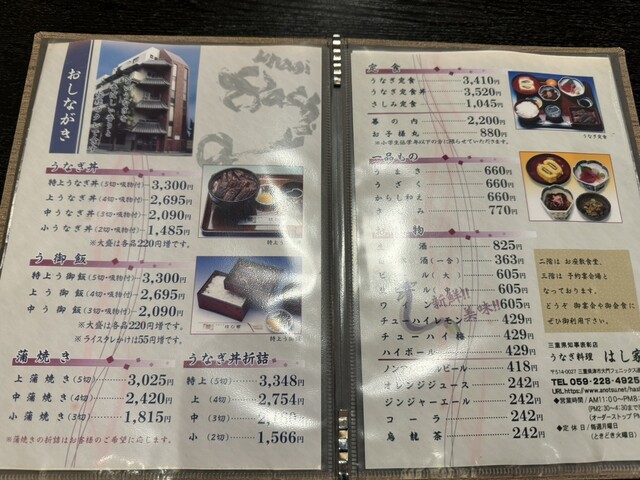 おしながき
うなぎ丼
特上うなぎ丼(5切・吸物付) 3,300円
上うなぎ丼(4切・吸物付) 2,695円
中うなぎ丼(3切・吸物付) 2,090円
小うなぎ丼(2切・吸物付) 1,485円
※大盛は各品220円増です。
う御飯
特上う御飯(5切・吸物付) 3,300円
上う御飯(4切・吸物付) 2,695円
中う御飯(3切・吸物付) 2,090円
※大盛は各品220円増です。
※ライスタレかけは55円増です。
蒲焼き
上蒲焼き(5切) 3,025円
中蒲焼き(4切) 2,420円
小蒲焼き(3切) 1,815円
※蒲焼きの折詰はお客様のご希望に応じます。
うなぎ丼折詰
特上(5切) 3,348円
上(4切) 2,754円
中(3切)
小(2切) 1,566円
定食
うなぎ定食 3,410円
うなぎ定食丼 3,520円
さしみ定食 1,045円
幕の内 2,200円
お子様丸 880円
※小学生低学年以下の方に限らせていただきます。
うなぎ定食
一品もの
うまき 660円
うざく 660円
からし和え 660円
さしみ 770円
物
酒 825円
酒(一合) 363円
ビール(大) 605円
605円
ワイン 605円
チューハイレモン 429円
チューハイ梅 429円
ハイボール 429円
ノンアルコールビール 418円
オレンジジュース 242円
ジンジャーエール 242円
コーラ 242円
烏龍茶 242円
新鮮!!
美味!!
二階は お座敷食堂。
三階は 予約宴会場と
なっております。
どうぞ 御宴会や御会食に
ぜひ御利用下さい。
三重県知事表彰店
うなぎ料理 はし家
〒514-0027 三重県津市大門フェニックス通
TEL 059-228-4925
◆営業時間/AM11:00〜PM8:
(PM2:30〜4:30まで
(オーダーストップ PM
◆定休日/毎週月曜日
(ときどき火曜日)